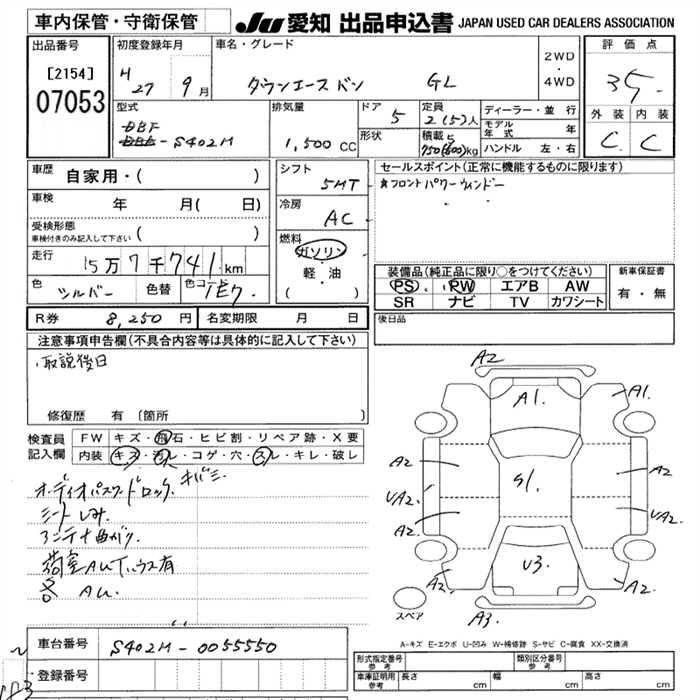 車内保管・守衛保管
JU 愛知 出品申込書 JAPAN USED CAR DEALERS ASSOCIATION
出品番号
[2154]
07053
初度登録年月
H 27 9月
車名・グレード
タウンエースバン GL
2WD
・
4WD
評価点
3.5
外装 内装
C C
型式
DBF
-S402M
排気量
1,500 CC
ドア
5
形状
定員
2(5)人
積載
750(600)kg
ディーラー・並行
モデル年式 年
ハンドル 左・右
車歴
自家用・( )
車検
年 月( 日)
受検形態
車検付きのみ記入して下さい ( )
走行
15万7千741km
色
シルバー
色替
色コード 1E7
シフト
5MT
冷房
AC
燃料
ガソリン
・
軽・油
( )
セールスポイント(正常に機能するものに限ります)
★フロントパワーウィンドー
装備品(純正品に限り○をつけてください)
PS PW エアB AW
SR ナビ TV カワシート
新車保証書
有・無
後日品
R券 8,250円 名変期限 月 日
注意事項申告欄(不具合内容等は具体的に記入して下さい)
取説後日
修復歴 有 〔箇所
検査員
記入欄
FW キズ・飛石・ヒビ割・リペア跡・X要
内装 キズ・汚レ・コゲ・穴・スレ・キレ・破レ
オーディオパスワードロック. キバミ
シートしみ.
アンテナ曲がり.
荷室AUTハウス有
各 AU.
A2
A1.
A1.
A2
A2
UA2
UA2.
A2.
A2.
S1.
U3.
A2.
A2.
A3.
スペア
A-キズ E-エクボ U-凹み W-補修跡 S-サビ C-腐食 XX-交換済
車台番号 S402M-0055550
登録番号
形式指定番号
参考
類別区分番号
参考
車庫証明用
参考
長さ cm 幅 cm 高さ cm